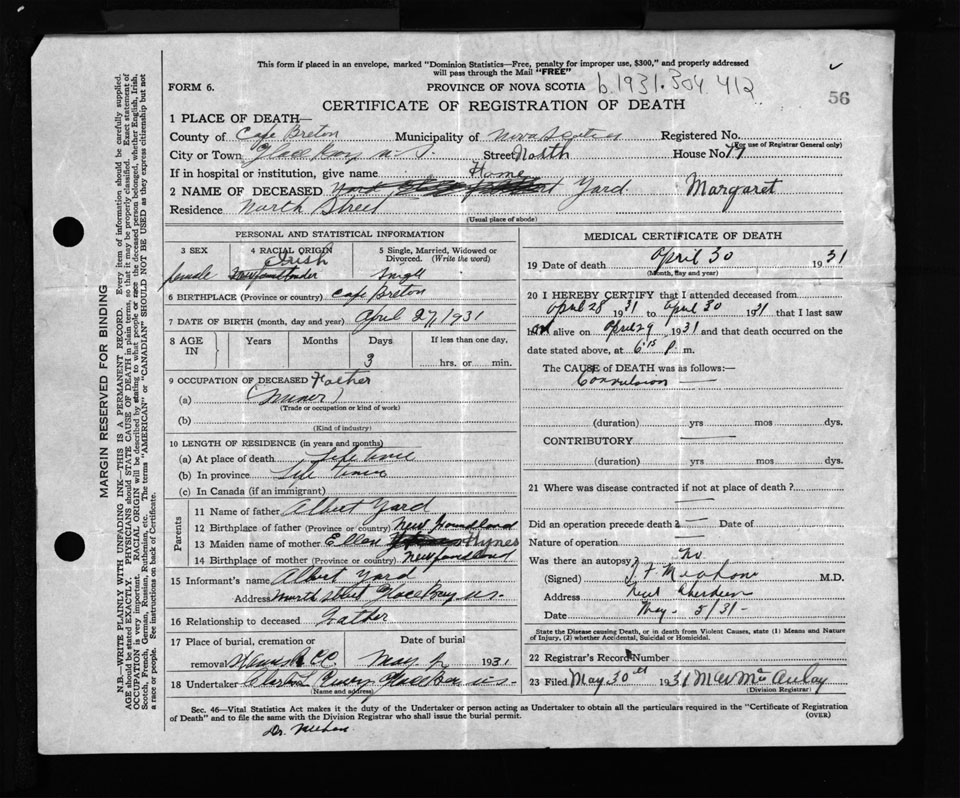 This form if placed in an envelope, marked "Dominion Statistics—Free, penalty for improper use, $300," and properly addressed
will pass through the Mail "FREE"
FORM 6.
PROVINCE OF NOVA SCOTIA
b.1931.304 412
56
CERTIFICATE OF REGISTRATION OF DEATH
1 PLACE OF DEATH—
County of Cape Breton Municipality of Nova Scotia Registered No.
(For use of Registrar General only)
City or Town Glace Bay N.S. Street North House No. 17
If in hospital or institution, give name Home
2 NAME OF DECEASED Yard Margaret
Residence North Street
(Usual place of abode)
PERSONAL AND STATISTICAL INFORMATION
3 SEX 4 RACIAL ORIGIN 5 Single, Married, Widowed or Divorced. (Write the word)
female Irish Single
6 BIRTHPLACE (Province or country) Cape Breton
7 DATE OF BIRTH (month, day and year) April 27, 1931
8 AGE IN Years Months Days If less than one day,
3 hrs. or min.
9 OCCUPATION OF DECEASED Father
(a) (Miner)
(Trade or occupation or kind of work)
(b)
(Kind of industry)
10 LENGTH OF RESIDENCE (in years and months)
(a) At place of death Life time
(b) In province Life time
(c) In Canada (if an immigrant)
Parents
11 Name of father Albert Yard
12 Birthplace of father (Province or country) New Foundland
13 Maiden name of mother Ellen Hynes
14 Birthplace of mother (Province or country) Newfoundland
15 Informant's name Albert Yard
Address North Street Glace Bay N.S.
16 Relationship to deceased Father
17 Place of burial, cremation or removal Date of burial
May 1931
18 Undertaker Glace Bay N.S.
(Name and address)
MEDICAL CERTIFICATE OF DEATH
19 Date of death April 30 1931
(Month, day and year)
20 I HEREBY CERTIFY that I attended deceased from
April 28 1931 to April 30 1931 that I last saw
h alive on April 29 1931 and that death occurred on
date stated above, at 6:15 p m.
The CAUSE of DEATH was as follows:—
Convulsion —
(duration) yrs mos dys.
CONTRIBUTORY
(duration) yrs mos dys.
21 Where was disease contracted if not at place of death?
Did an operation precede death? — Date of
Nature of operation —
Was there an autopsy? No
(Signed) M.D.
Address New Aberdeen
Date May 5/31
State the Disease causing Death, or in death from Violent Causes, state (1) Means and Nature of Injury, (2) whether Accidental, Suicidal or Homicidal.
22 Registrar's Record Number
23 Filed May 30th 1931 M McAulay
(Division Registrar)
Sec. 46—Vital Statistics Act makes it the duty of the Undertaker or person acting as Undertaker to obtain all the particulars required in the "Certificate of Registration
of Death" and to file the same with the Division Registrar who shall issue the burial permit.
(OVER)
Dr.
MARGIN RESERVED FOR BINDING
N.B.—WRITE PLAINLY WITH UNFADING INK—THIS IS A PERMANENT RECORD. Every item of information should be carefully supplied.
AGE should be stated EXACTLY. PHYSICIANS should STATE CAUSE OF DEATH in plain terms, so that it may be properly classified. Exact statement of
OCCUPATION is very important. RACIAL ORIGIN will be described by stating to what people or race the deceased person belonged, whether English, Irish,
Scotch, French, German, Russian, Ruthenian, etc. The terms "AMERICAN" or "CANADIAN" SHOULD NOT BE USED as they express citizenship but not
a race or people. See instructions on back of Certificate.